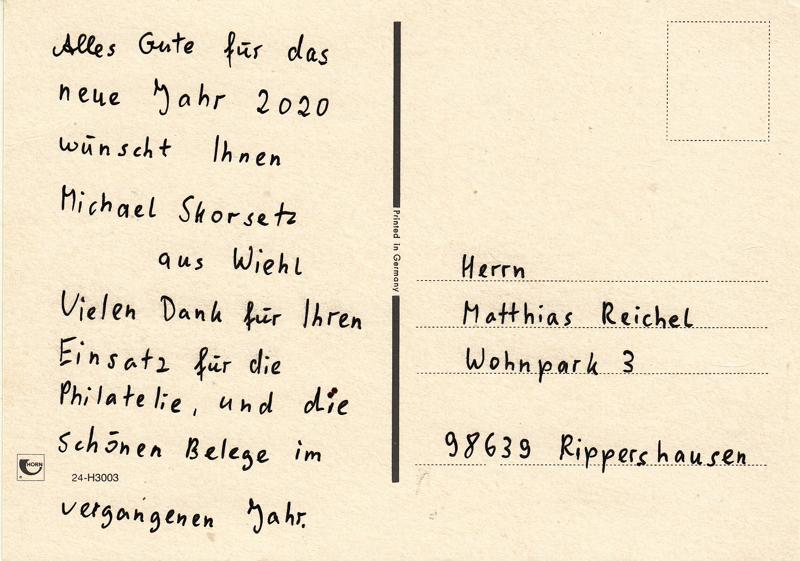 Alles Gute für das
neue Jahr 2020
wünscht Ihnen
Michael Skorsetz
aus Wiehl
Vielen Dank für Ihren
Einsatz für die
Philatelie, und die
schönen Belege im
vergangenen Jahr.
HORN
24-H3003
Printed in Germany
Herrn
Matthias Reichel
Wohnpark 3
98639 Rippershausen